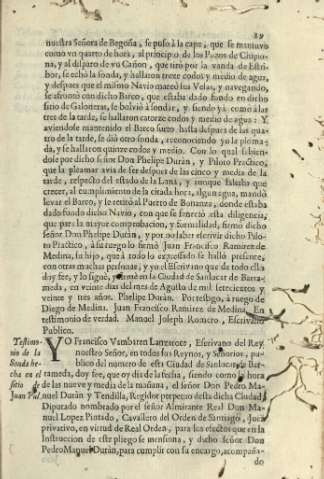 29
nuestra Señora de Begoña, se puso à la capa, que se mantuvo
como vn quarto de hora, al principio de los Pozos de Chipio-
na, y al disparo de vn Cañon, que tirò por la vanda de Estri-
bor, se echò la sonda, y hallaron trece codos y medio de agua,
y despues que el mismo Navio mareò sus Velas, y navegando,
se afrontò con dicho Barco, que estaba dado fondo en dicho
sitio de Galoneras, se bolviò à sondar, y siendo yà como à las
tres de la tarde, se hallaron catorze codos y medio de agua: Y
aviendose mantenido el Barco surto hasta despues de las qua-
tro de la tarde, se diò otro sonda, reconociendo yà la pleama-
da, y se hallaron quinze codos y medio. Con lo qual subien-
dole por dicho señor Don Phelipe Durán, y Piloto Practico,
que la pleamar avia de ser despues de las cinco y media de la
tarde, respecto del estado de la Luna, y aunque faltaba que
crecer, al cumplimiento de la citada hora, algun agua, mandò
levar el Barco, y se retirò al Puerto de Bonanza, donde estaba
dado fondo dicho Navio, con que se feneciò esta diligencia,
que para la mayor comprobacion, y formalidad, firmò dicho
señor Don Phelipe Durán, y por no saber escrivir dicho Pilo-
to Practico, à su ruego lo firmò Juan Francisco Ramirez de
Medina, su hijo, que à todo lo expressado se hallò presente,
con otras muchas personas, y yo el Escrivano que de todo ello
doy fee, y lo signè, y firmè en la Ciudad de Sanlucar de Barra-
meda, en veinte dias del mes de Agosto de mil setecientos y
veinte y tres años. Phelipe Durán. Por testigo, à ruego de
Diego de Medina. Juan Francisco Ramirez de Medina. En
testimonio de verdad. Manuel Joseph Romero, Escrivano
Publico.
Testimo-
nio de la
Sonda he-
cha en el
sitio de
Juan Pul.
YO Francisco Vambaren Lanzerote, Escrivano del Rey
nuestro Señor, en todos sus Reynos, y Señorios, pu-
blico del numero de esta Ciudad de Sanlucar de Bar-
rameda, doy fee, que oy dia de la fecha, siendo como la hora
de las nueve y media de la mañana, el señor Don Pedro Ma-
nuel Durán y Tendilla, Regidor perpetuo desta dicha Ciudad,
Diputado nombrado por el señor Almirante Real Don Ma-
nuel Lopez Pintado, Cavallero del Orden de Santiago, Juez
privativo, en virtud de Real Orden, para los efectos que en la
Instruccion de este pliego se menciona, y dicho señor Don
Pedro Manuel Durán, para cumplir con su encargo, acompaña-
do